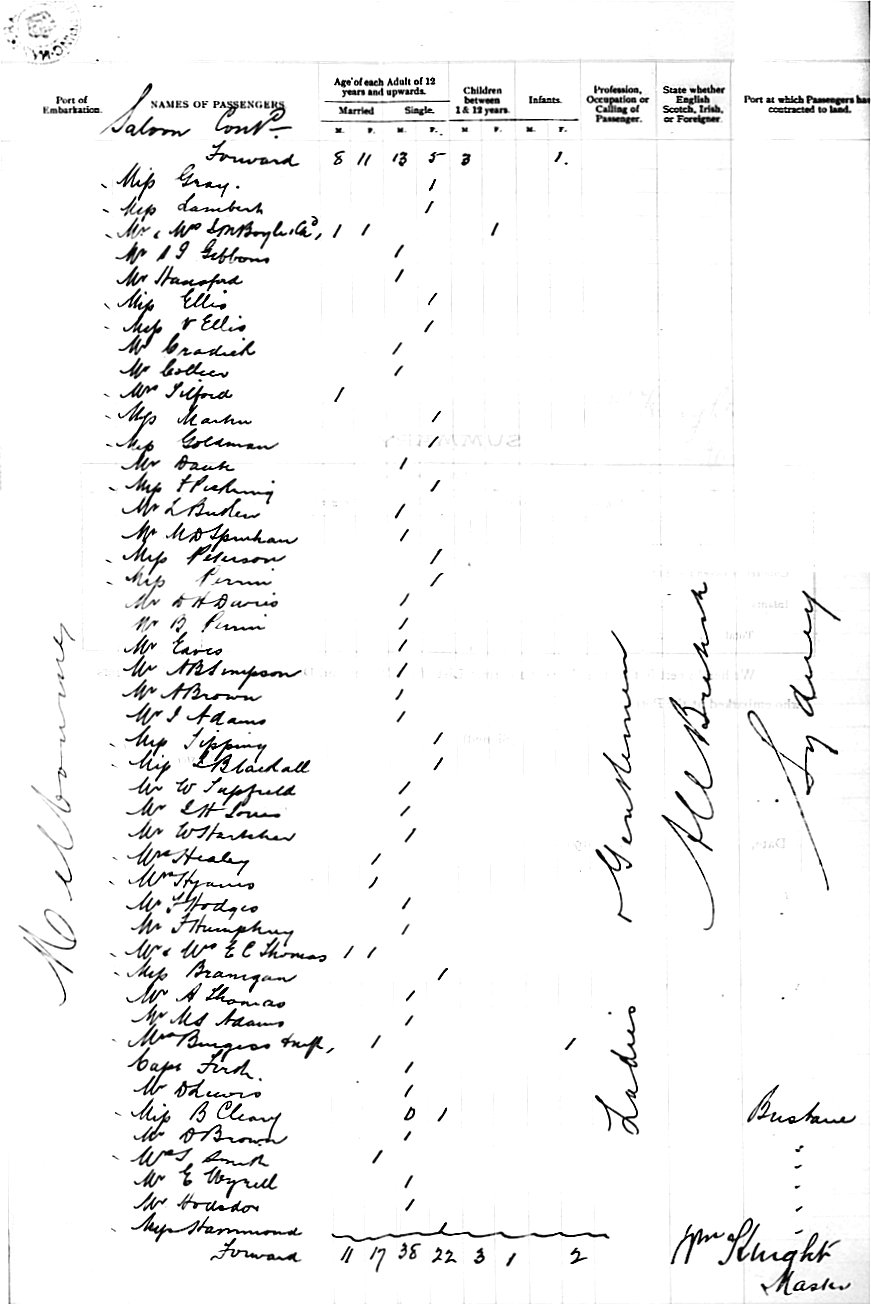 Port of Embarkation. NAMES OF PASSENGERS Age of each Adult of 12 years and upwards. Children between 1 & 12 years. Infants. Profession, Occupation or Calling of Passenger. State whether English Scotch, Irish, or Foreigner. Port at which Passengers have contracted to land.
Married Single.
M. F. M. F. M F. M. F.
Saloon Contd
Forward 8 11 13 5 3 1.
Miss Gray. 1
Miss Lambert 1
Mr & Mrs Boyle & Chd, 1 1 1
Mr Gibbons 1
Mr Hansford 1
Miss Ellis 1
Miss V Ellis 1
Mr Cradick 1
Mr Collier 1
Mrs Tilford 1
Miss Martin 1
Miss Goldman 1
Mr 1
Miss F Pickering 1
Mr L 1
Mr M D 1
Miss Peterson 1
Miss Perrin 1
Mr D H Davies 1
Mr B Perrin 1
Mr Eaves 1
Mr A B Simpson 1
Mr A Brown 1
Mr J Adams 1
Miss Tipping 1
Miss Blackall 1
Mr W Tuffield 1
Mr H 1
Mr W 1
Mrs Healey 1
Mrs Hyams 1
Mr F Hodges 1
Mr F Humphrey 1
Mr & Mrs E C Thomas 1 1
Miss Branigan 1
Mr A Thomas 1
Mr M S Adams 1
Mrs Burgess & inft, 1 1
Capt Firth 1
Mr D Lewis 1
Miss B Cleary 0 1 Brisbane
Mr D Brown 1 "
Mrs S Smith 1 "
Mr E Weyrell 1 "
Mr Hodsdon 1 "
Miss Hammond 1 "
Forward 11 17 38 22 3 1 2
Melbourne
Ladies & Gentlemen
All British
Sydney
Wm Knight
Master